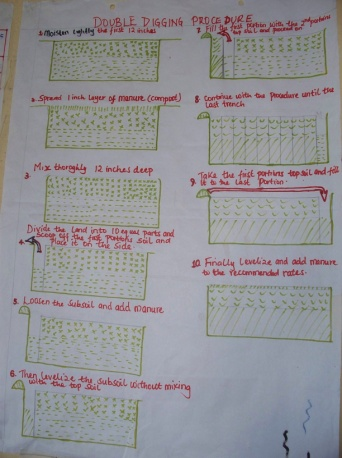 DOUBLE DIGGING PROCEDURE
1. Moisten Lightly the first 12 inches
2. Spread 1 inch layer of manure (compost)
3. Mix thoroghly 12 inches deep
Divide the land into 10 equal parts and
4. scoop off the first portions soil and
place it on the side
5. Loosen the subsoil and add manure
6. Then levelize the subsoil without mixing
with the top soil
7. Fill the first portion with the 2nd portions
top soil and proceed on
8. Continue with the procedure until the
last trench
9. Take the first portions top soil and fill
it to the last Portion.
10. Finally levelize and add manure
to the recommended rates.